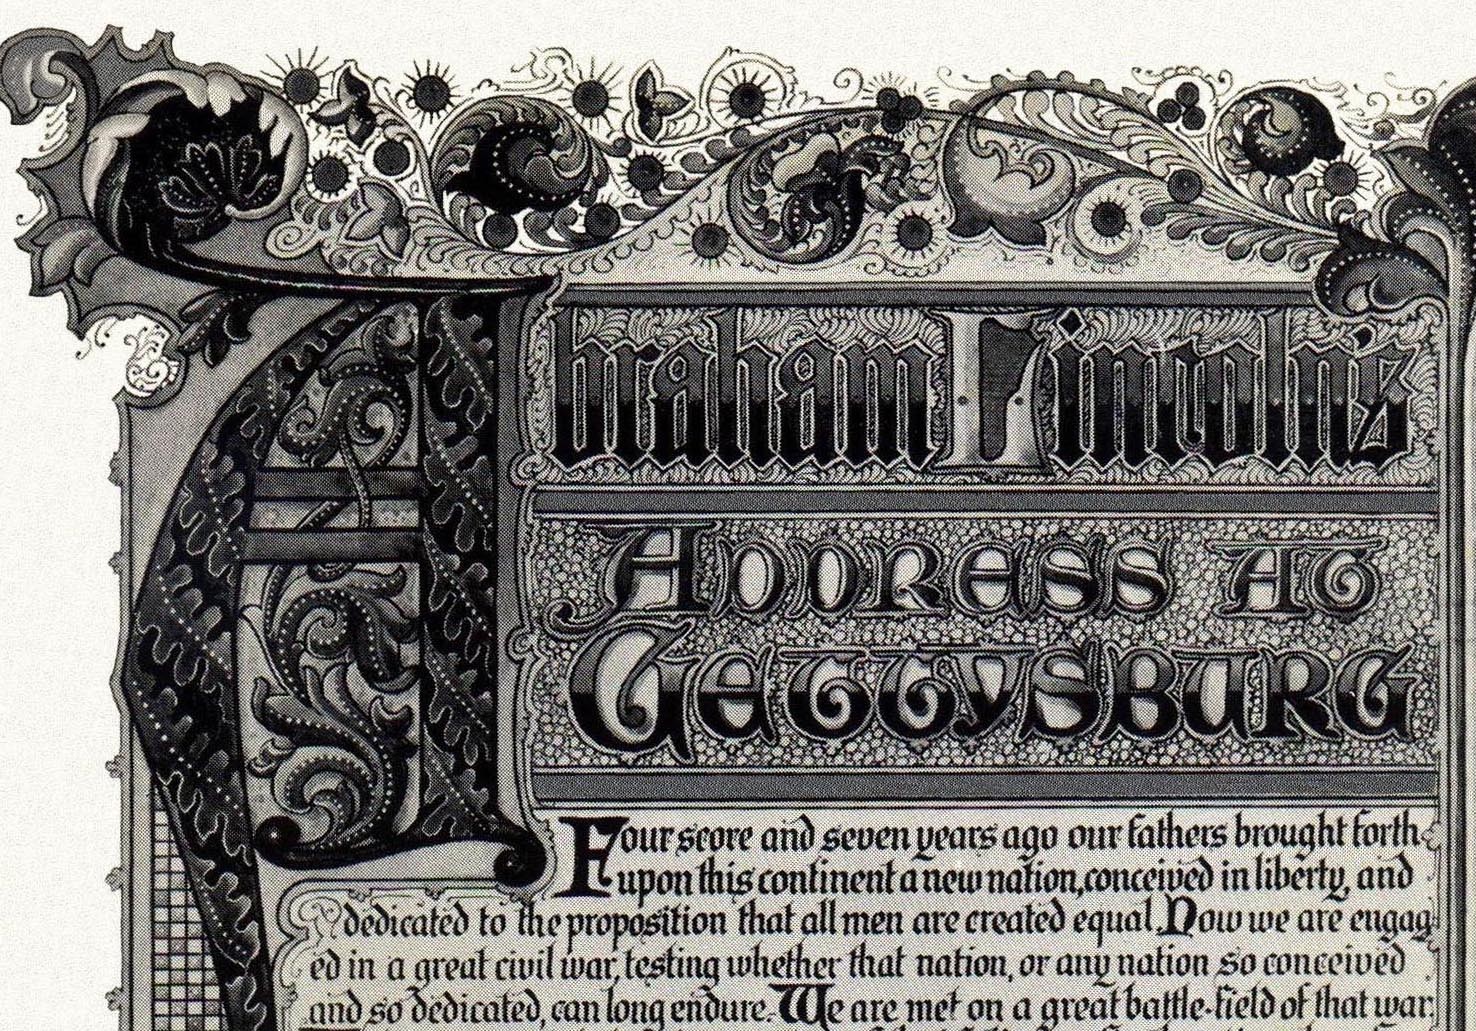 Abraham Lincoln's
Address at
Gettysburg
Four score and seven years ago our fathers brought forth
upon this continent a new nation, conceived in liberty, and
dedicated to the proposition that all men are created equal. Now we are engag-
ed in a great civil war, testing whether that nation, or any nation so conceived
and so dedicated, can long endure. We are met on a great battle-field of that war.